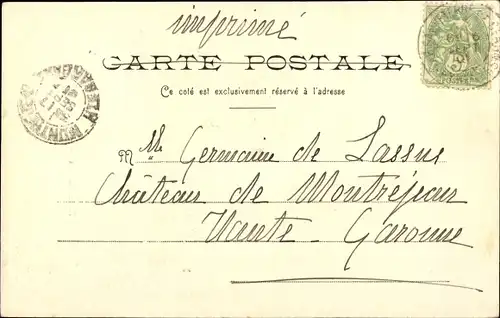 imprimé
CARTE POSTALE
Ce coté est exclusivement réservé à l'adresse
Mlle Germaine de Lassus
Château de Montréjeau
Haute-Garonne